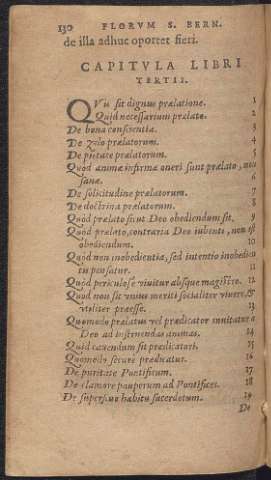 130 FLORVM S. BERN.
de illa adhuc oportet fieri.
CAPITVLA LIBRI
TERTII.
QVis sit dignus prælatione. 1
Quid necessarium prælato. 2
De bona conscientia. 3
De zelo prælatorum. 4
De pietate prælatorum. 5
Quòd animæ infirmæ oneri sunt prælato, non
sanæ. 6
De solicitudine prælatorum. 7
De doctrina prælatorum. 8
Quòd prælato sicut Deo obediendum sit. 9
Quòd prælato, contraria Deo iubente, non est
obediendum. 10
Quòd non inobedientia, sed intentio inobedien
tis pensatur. 11
Quòd periculosè viuitur absque magistro. 12
Quòd non sit vnius meriti socialiter viuere, &
vtiliter præesse. 13
Quomodo prælatus vel prædicator inuitatur a
Deo ad instruendas animas. 14
Quid cauendum sit prædicatori. 15
Quomodo securè prædicatur. 16
De puritate Pontificum. 17
De clamore pauperum ad Pontifices. 18
De superfluo habitu sacerdotum. 19
De